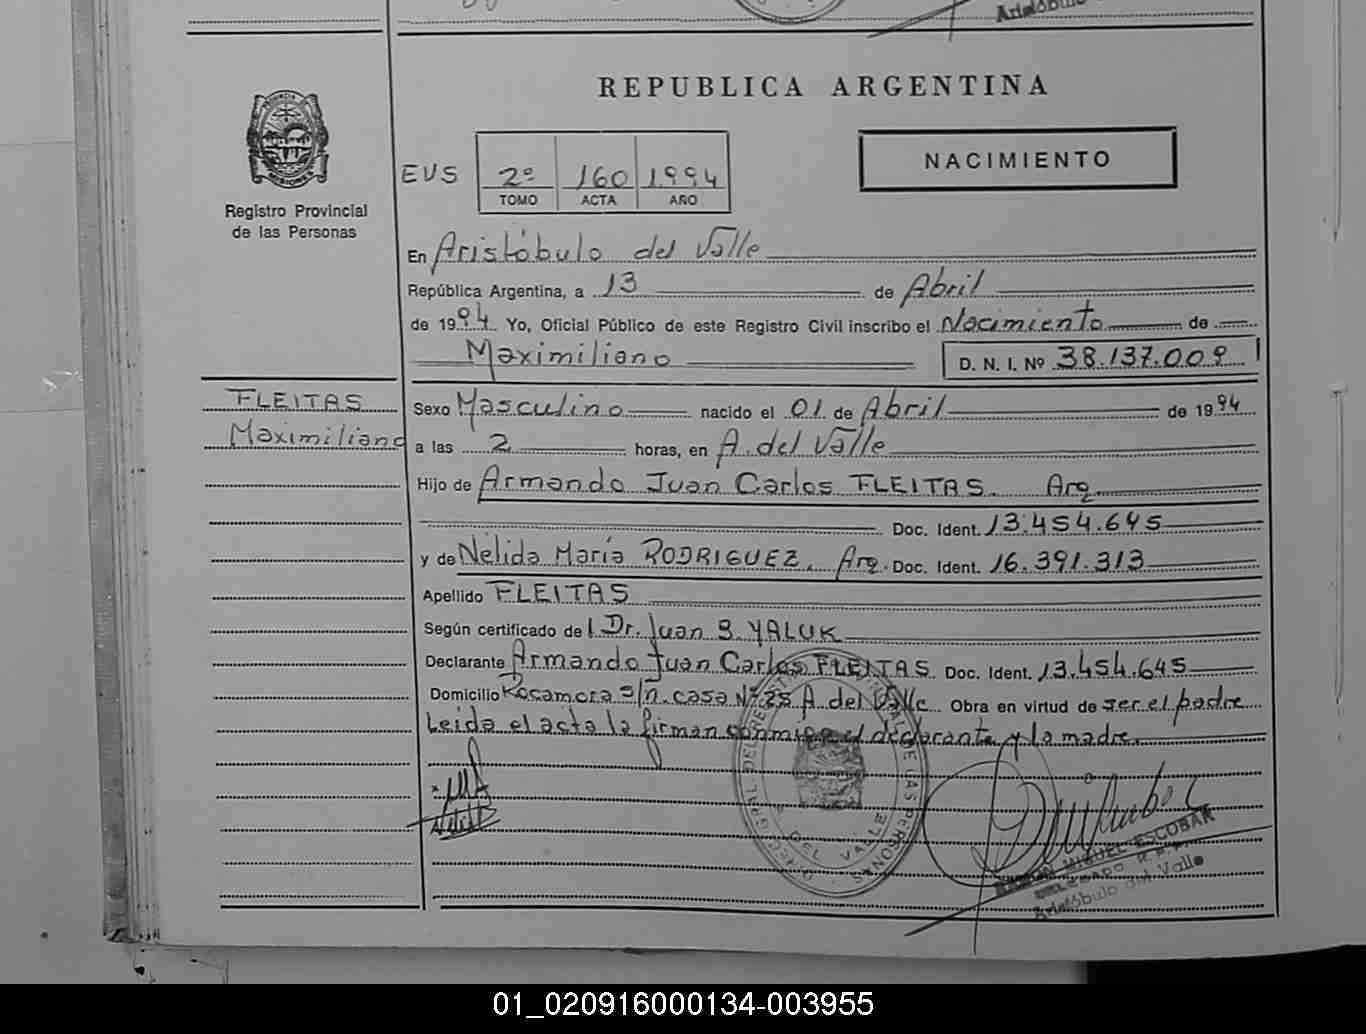 REPUBLICA ARGENTINA
PROVINCIA DE MISIONES
Registro Provincial
de las Personas
EVS 2º 160 1994
TOMO ACTA AÑO
NACIMIENTO
En Aristóbulo del Valle
República Argentina, a 13 de Abril
de 1994 Yo, Oficial Público de este Registro Civil inscribo el Nacimiento de
Maximiliano D. N. I. Nº 38.137.009
FLEITAS
Maximiliano
Sexo Masculino nacido el 01 de Abril de 1994
a las 2 horas, en A. del Valle
Hijo de Armando Juan Carlos FLEITAS. Arg.
Doc. Ident. 13.454.645
y de Nélida María RODRIGUEZ, Arg. Doc. Ident. 16.391.313
Apellido FLEITAS
Según certificado del Dr. Juan S. YALUK
Declarante Armando Juan Carlos FLEITAS Doc. Ident. 13.454.645
Domicilio Rocamora s/n. casa Nº 25 A. del Valle Obra en virtud de ser el padre
Leída el acta la firman conmigo el declarante y la madre.
DEL VALLE
MIGUEL ESCOBAR
DELEGADO R.P.P.
Aristóbulo del Valle
01_020916000134-003955